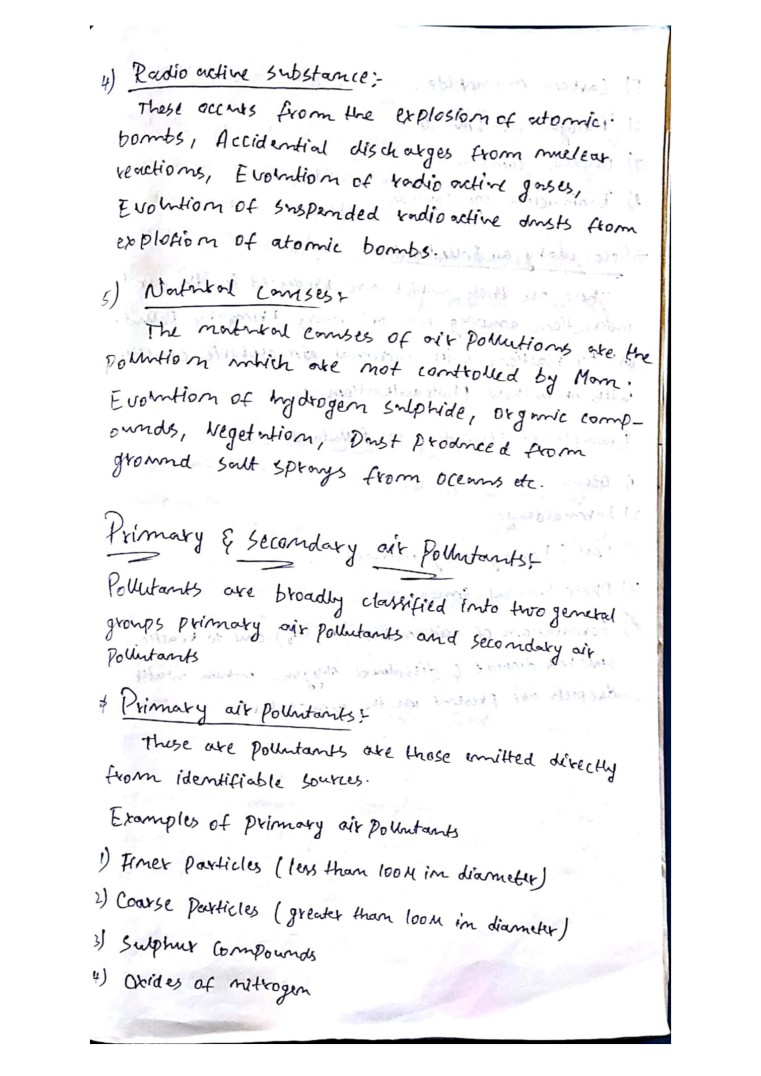 4) Radio active substance:-
These occurs from the explosion of atomic
bombs, Accidential discharges from nuclear
reactions, Evolution of radio active gases,
Evolution of suspended radio active dusts from
explosion of atomic bombs.
5) Natural Causes:
The natural causes of air Pollutions are the
Pollution which are not controlled by Man.
Evolution of hydrogen sulphide, organic comp-
ounds, Vegetation, Dust Produced from
ground salt sprays from oceans etc.
Primary & secondary air Pollutants:-
Pollutants are broadly classified into two general
groups primary air pollutants and secondary air
Pollutants
* Primary air pollutants:-
These are pollutants are those emitted directly
from identifiable sources.
Examples of primary air Pollutants
1) Finer Particles (less than 100M in diameter)
2) Coarse Particles (greater than 100M in diameter)
3) Sulphur Compounds
4) Oxides of nitrogen